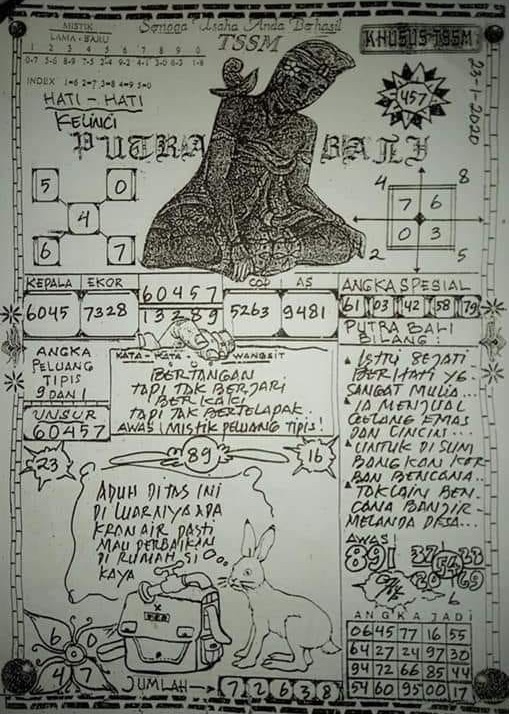 MISTIK
LAMA - BARU
1 2 3 4 5 6 7 8 9 0
Semoga Usaha Anda Berhasil
TSSM
KHUSUS TSSM
23-1-2020
457
INDEX 1=6 2=7 3=8 4=9 5=0
HATI - HATI
KELINCI
PUTRA BALI
5 0
4
6 7
4 8
7 6
0 3
2 5
KEPALA EKOR
6045 7328
60457
13289
COP AS
5263 9481
ANGKA SPESIAL
61 03 42 58 79
ANGKA
PELUANG
TIPIS
9 DAN 1
UNSUR
60457
KATA - KATA - WANGSIT
BERTANGAN
TAPI TAK BERJARI
BERKAKI
TAPI TAK BERTELAPAK..
AWAS! MISTIK PELUANG TIPIS!
PUTRA BALI
BILANG:
ISTRI SEJATI
BERHATI YG
SANGAT MULIA...
IA MENJUAL
GELANG EMAS
DAN CINCIN...
UNTUK DI SUM
BANGKAN KOR
BAN BENCANA..
TAK LAIN BEN
CANA BANJIR
MELANDA DESA...
AWAS!
891
23 89 16
ADUH DI TAS INI
DI LUARNIYA ADA
KRAN AIR PASTI
MAU PERBAIKAN
DI RUMAH SI
KAYA
6 0
4 7
JUMLAH
7 2 6 3 8
ANGKA JADI
06 45 77 16 55
64 27 24 97 30
94 72 66 85 44
54 60 95 00 17